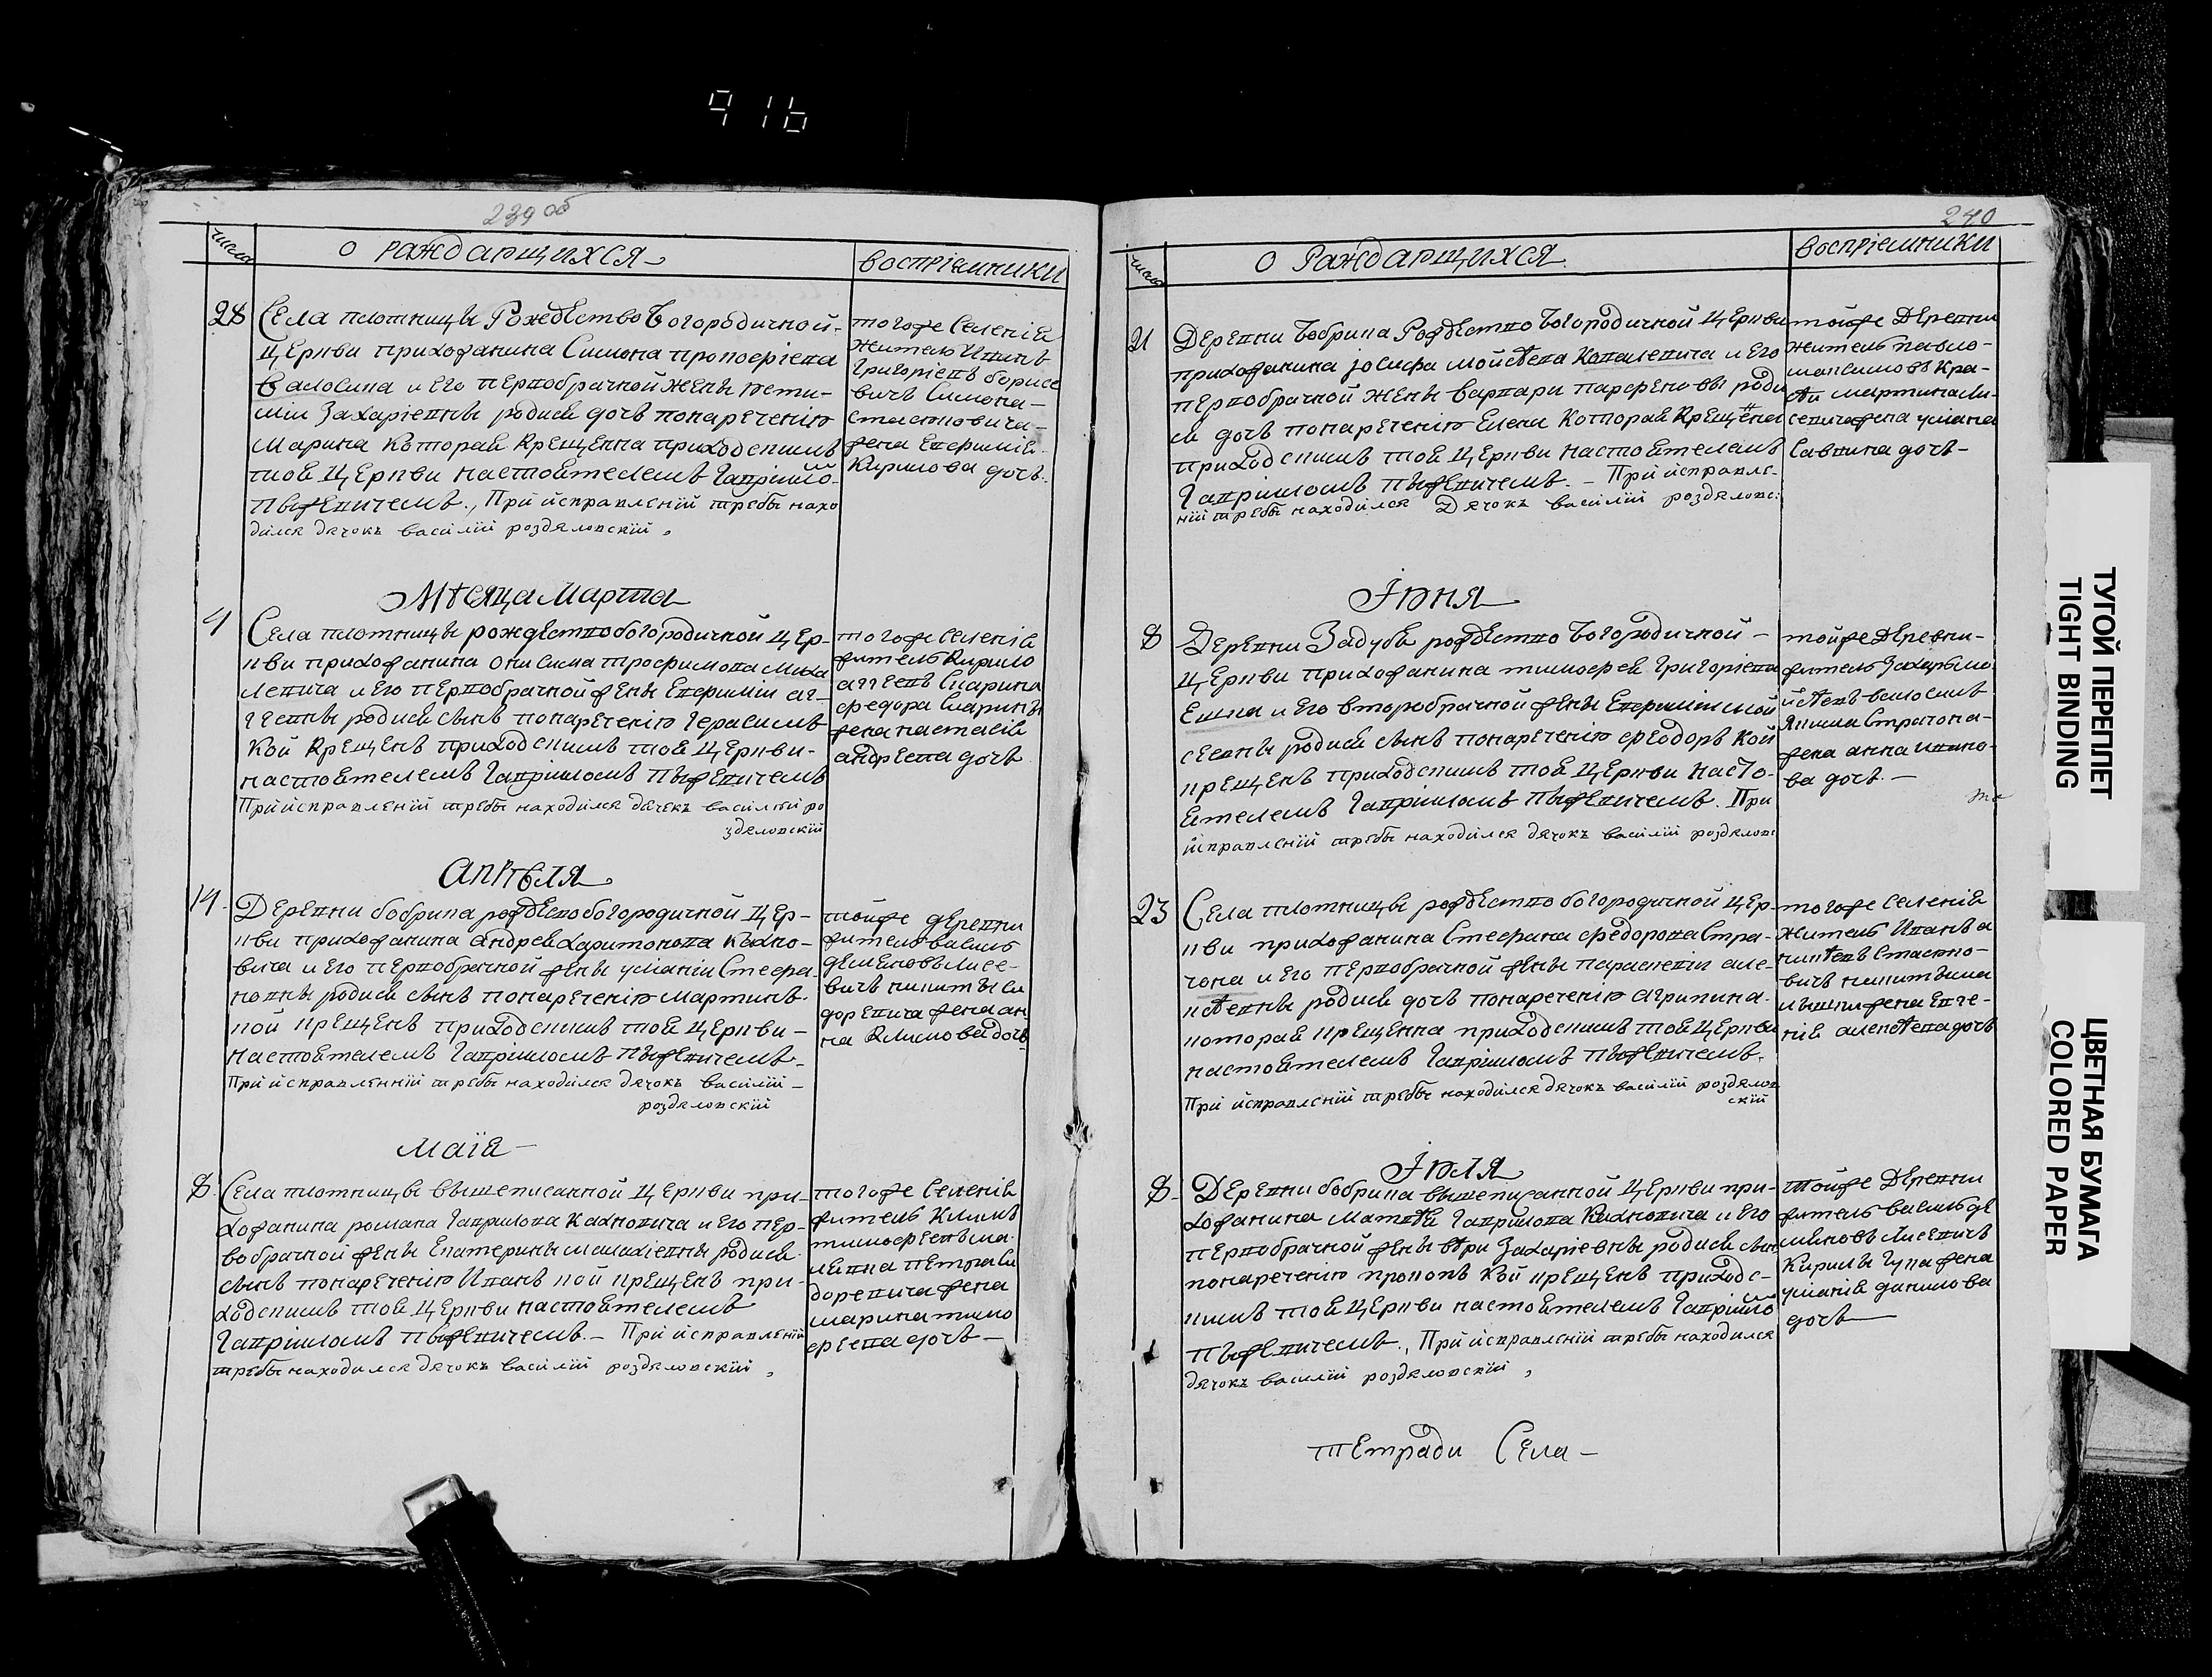 916
239 об
числа
О РАЖДАЮЩИХСЯ
ВОСПРІЕМНИКИ
28
Села плотницы Рождество Богородичной
Церкви прихожанина Симона прокофіева
Валосина и Его первобрачной жены фети-
міи Захаріевны родися дочь понареченію
Марина которая крещенна приходскимъ
тоя Церкви настоятелемъ Гавріило
Пыжевичемъ., При исправленіи требы нахо
дился дячокъ василій роздяловскій,
тогоже Селенія
житель Иванъ
Григоріевъ борисе
вичъ Симона
стасіовича
жена Евфимія
Кирилова дочь.
Мѣсяца Марта
4
Села плотницы рождество богородичной Цер-
кви прихожанина Онисима трофимова Миха
левича и Его первобрачной жены Евфиміи аг-
геевны родися сынъ понареченію Герасимъ
Кой крещенъ приходскимъ тоя Церкви-
настоятелемъ Гавріиломъ Пыжевичемъ
При исправленіи требы находился дячекъ василій ро
здяловскій
тогоже Селенія
житель Кирило
аггеевъ Скарина
федора Скарины
жена настасія
андреева дочь
АПРѢЛЯ
14
Деревни бобрика рождество богородичной Цер-
кви прихожанина андрея харитонова Кахно-
вича и Его первобрачной жены уліаніи Стефа-
новны родися сынъ понареченію Мартинъ
кой крещенъ приходскимъ тоя Церкви-
настоятелемъ Гавріиломъ Пыжевичемъ-
При исправленніи требы находился дячокъ василій-
роздяловскій
тойже деревни
житель василь
деменовъ лисе-
вичъ никиты Си
доревича жена ан
на Климова дочь
маія-
8
Села плотницы вышеписанной Церкви при-
хожанина романа Гаврилова Кахновича и Его пер-
вобрачной жены Екатерины малахіевны родися
сынъ понареченію Иванъ кой крещенъ при-
ходскимъ тоя Церкви настоятелемъ
Гавріиломъ Пыжевичемъ.- При исправленіи
требы находился дячокъ василій роздяловскій,
тогоже Селенія
житель Климъ
тимофеевъ
петра Си
доревича жена
марина тимо
феева дочь-
240
числа
О РАЖДАЮЩИХСЯ
ВОСПРІЕМНИКИ
21
Деревни Бобрика Рождество Богородичной Церкви
прихожанина Іосифа мойсѣева Ковалевича и Его
первобрачной жены варвари парфеновы роди
ся дочь понареченію Елена Которая Крещена
приходскимъ тоя Церкви настоятелемъ
Гавріиломъ Пыжевичемъ.- При исправле-
ніи требы находился Дячокъ василій роздяловс
тойже Деревни
житель павло-
максимовъ
мартина Ли-
севича жена уліана
Савкина дочь-
Іюня
8
Деревни Задубья рождество Богородичной-
Церкви прихожанина тимофея Григоріева
и Его второбрачной жены Евфиміи мой
сеевны родися сынъ понареченію феодоръ Кой
крещенъ приходскимъ тоя Церкви насто-
ятелемъ Гавріиломъ Пыжевичемъ. При
исправленіи требы находился дячокъ василій роздяловс
тойже Деревни-
житель Захаръ мо
йсѣевъ
жена анна
ва дочь.-
23
Села плотницы рождество богородичной Цер-
кви прихожанина Стефана федорова Стра-
чона и Его первобрачной жены параскевіи але-
ксѣевны родися дочь понареченію агрипина
которая крещенна приходскимъ тоя Церкви
настоятелемъ Гавріиломъ Пыжевичемъ.
При исправленіи требы находился дячокъ василій роздялов
скій
тогоже селенія
житель Иванъ
жена Евге-
нія алексѣева дочь
Іюля
8
Деревни бобрика вышеписанной Церкви при-
хожанина Матвѣя Гаврилова Кахновича и Его
первобрачной жены Ѣври Захаріевны родися сынъ
понареченію прокопъ Кой крещенъ приходс-
кимъ тоя Церкви настоятелемъ Гавріило
Пыжевичемъ., При исправленіи требы находился
дячокъ василій роздяловскій,
тойже Деревни
житель василь де
миновъ лисевичъ
Кирилы жена
уліанія данилова
дочь
тетради Села-
ТУГОЙ ПЕРЕПЛЕТ
TIGHT BINDING
ЦВЕТНАЯ БУМАГА
COLORED PAPER